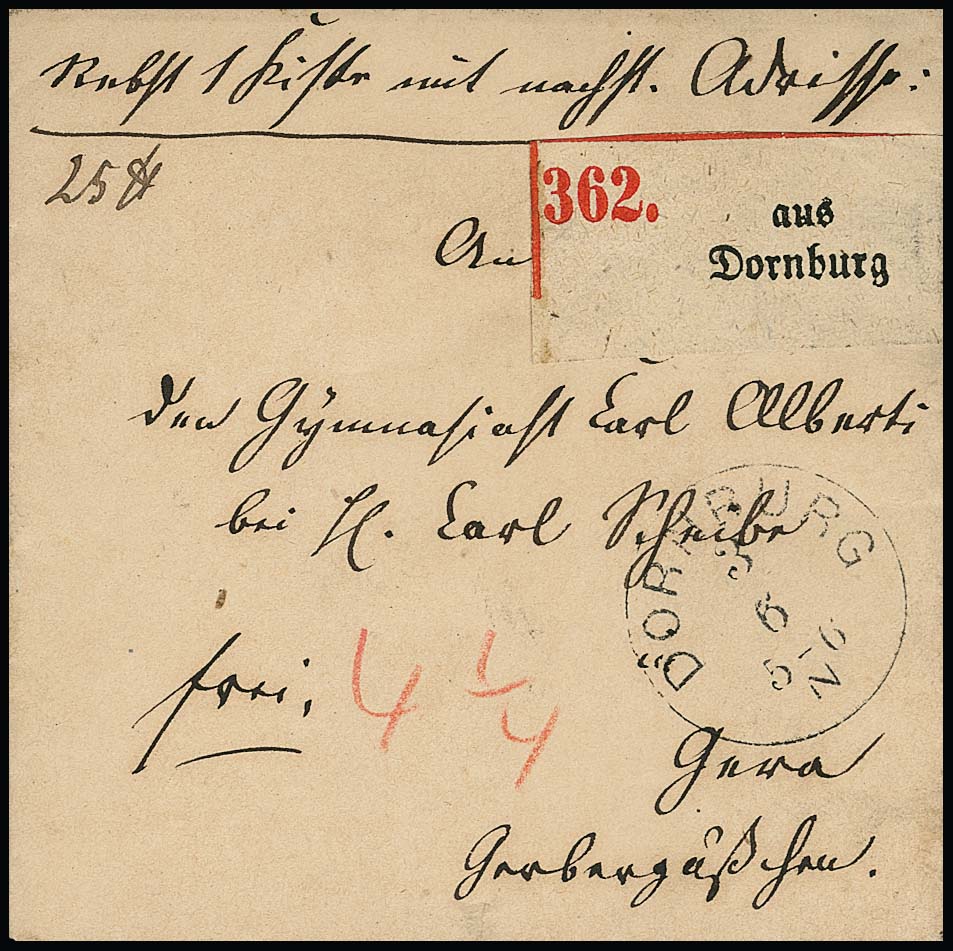 Nebst 1 Kiste mit nachst. Adresse:
25 ℔
362.
aus
Dornburg
An
den Gymnasiast Carl Alberti
bei H. Carl Scheibe
DORNBURG
3
6
5-6
N
frei.
4 1/4
Gera
Gerbergäßchen.